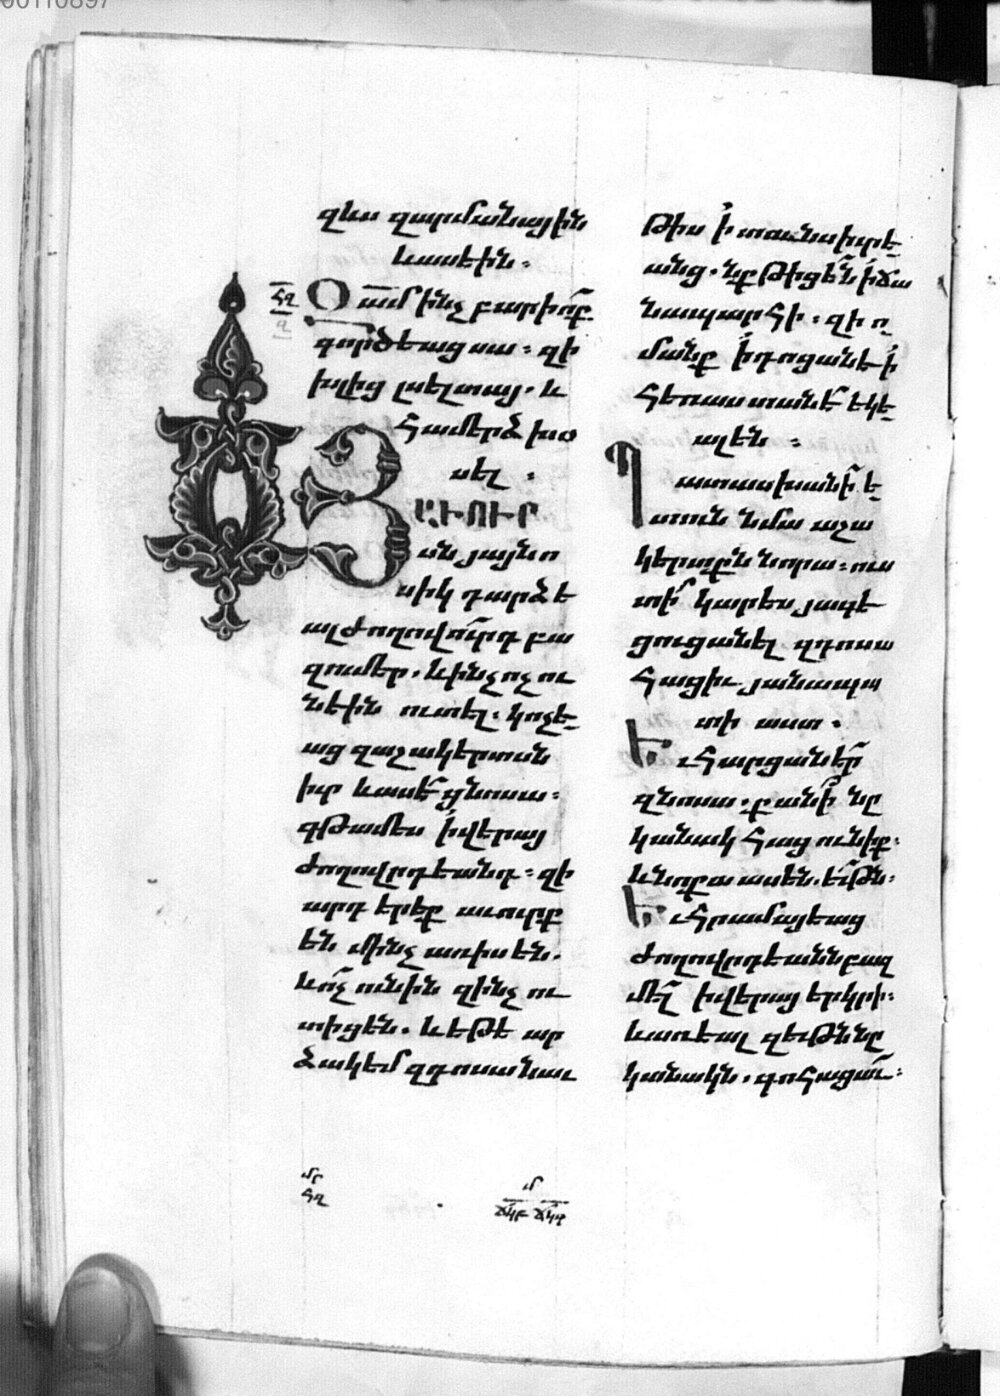 00110897
զևս զարմանային
և ասէին.
ՀԶ
Օ ամինչ բարիոք
գործեաց սա. զի
խլից լսել տայ. և
համերձ խօ
սել.
ՅԱՒՈՒՐ
սն յայնո
սիկ դարձե
ալ ժողովուրդ բա
զումեր. և ինչ ոչ ու
նէին ուտել. կոչե
աց զաշակերտսն
իւր և ասէ ցնոսա.
գթամ ես ի վերայ
ժողովրդեանդ. զի
արդ երեք աւուրք
են մինչ առ իս են.
և ոչ ունին զինչ ու
տիցեն. և եթէ ար
ձակեմ զդոսա նաւ
թիս ի տունս իւրե
անց. նքթիցեն ի ճա
նապարհի. զի ո
մանք ի դոցանէ ի
հեռաստանէ եկե
ալ են.
Պ ատասխանի ե
տուն նմա աշա
կերտքն նորա. ուս
տի կարես յագե
ցուցանել զդոսա
հացիւ յանապա
տի աստ.
Եւ հարցանէր
զնոսա. քանի նը
կանակ հաց ունիք.
և նոքա ասեն. եւթն.
Եւ հրամայեաց
ժողովրդեանն բազ
մել ի վերայ երկրի.
և առեալ զեւթն նը
կանակն. գոհացաւ.
մր
ՀԶ
մ
ՃԿԲ ՃԿԴ